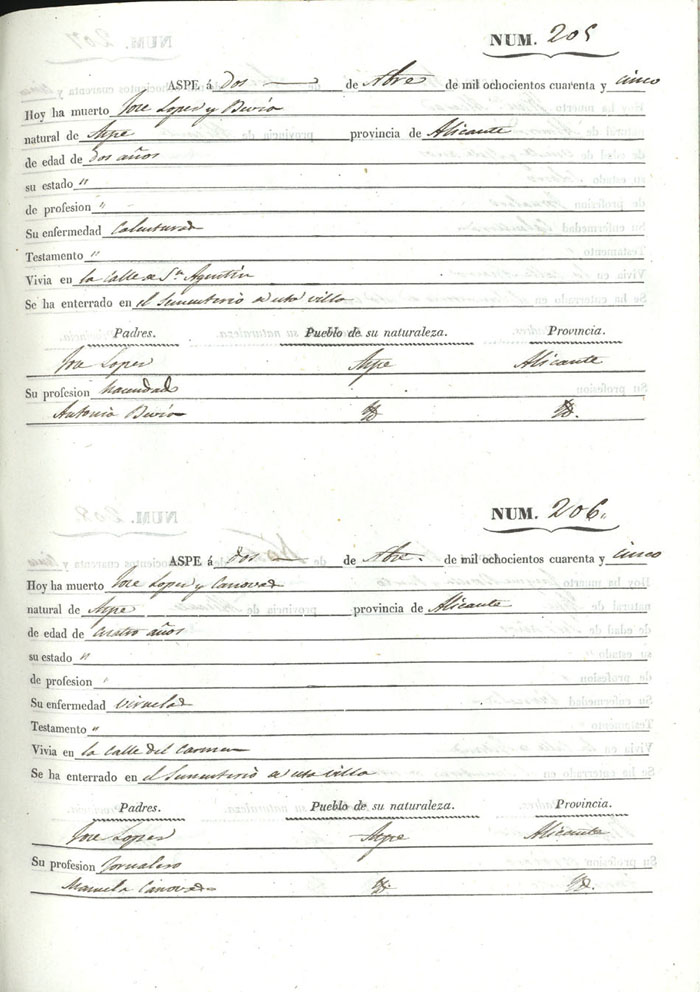 NUM. 205
ASPE á dos de Abre de mil ochocientos cuarenta y cinco
Hoy ha muerto Jose Lopez y
natural de Aspe provincia de Alicante
de edad de dos años
su estado "
de profesion "
Su enfermedad Calenturas
Testamento "
Vivia en la calle de Sn. Agustin
Se ha enterrado en el Sementerio de esta villa
Padres. Pueblo de su naturaleza. Provincia.
Jose Lopez Aspe Alicante
Su profesion
Antonia Yd. Yd.
NUM. 206.
ASPE á dos de Abre. de mil ochocientos cuarenta y cinco
Hoy ha muerto Jose Lopez y Canovas
natural de Aspe provincia de Alicante
de edad de cuatro años
su estado "
de profesion "
Su enfermedad Viruelas
Testamento "
Vivia en la calle del Carmen
Se ha enterrado en el Sementerio de esta villa
Padres. Pueblo de su naturaleza. Provincia.
Jose Lopez Aspe Alicante
Su profesion Jornalero
Manuela Canovas Yd. Yd.